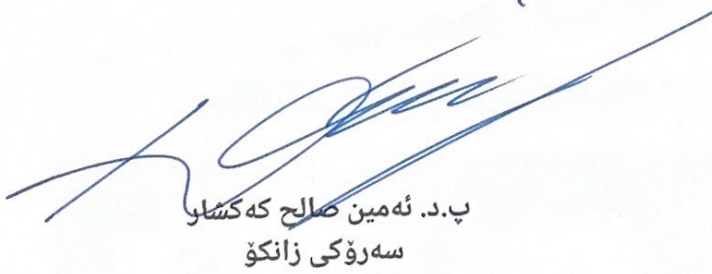 پ.د. ئەمین صالح کەکشار
سەرۆکی زانکۆ